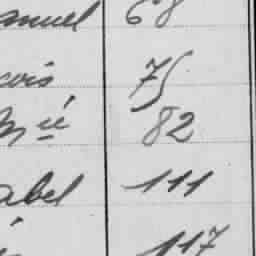 anuel 68
çois 75
Mié 82
abel 111
117